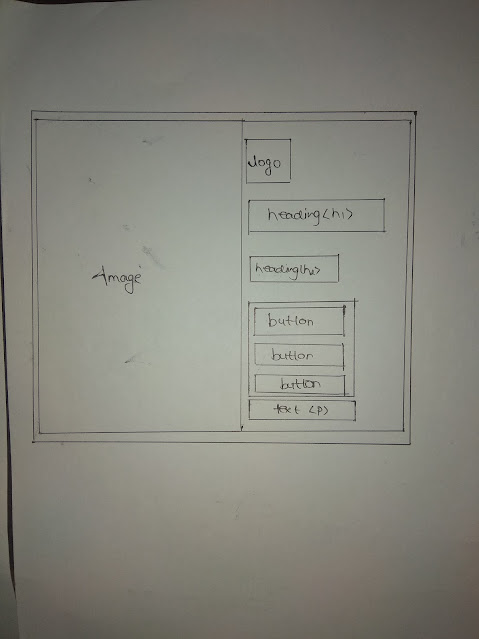 Image
logo
heading<h1>
heading<h1>
button
button
button
text <p>